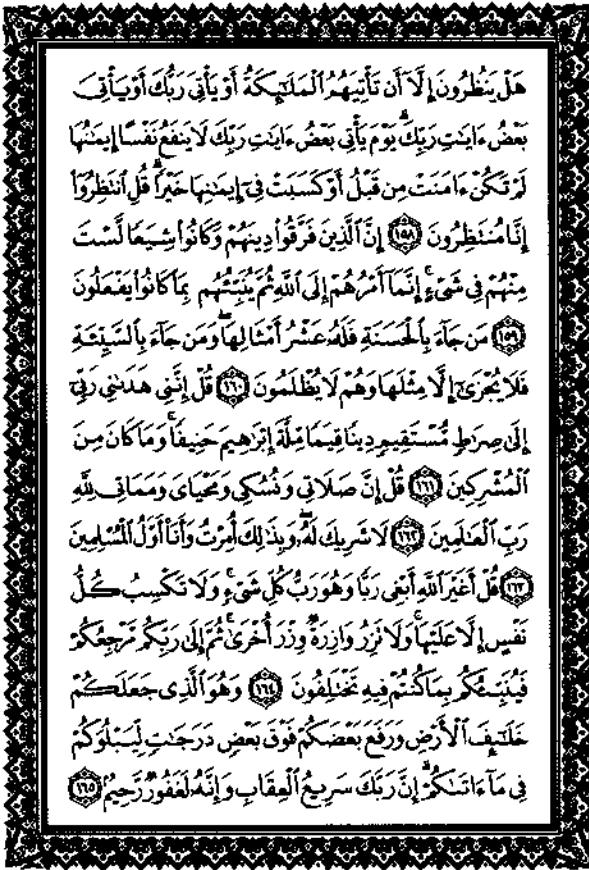 هَلْ يَنظُرُونَ إِلَّآ أَن تَأْتِيَهُمُ ٱلْمَلَٰٓئِكَةُ أَوْ يَأْتِىَ رَبُّكَ أَوْ يَأْتِىَ
بَعْضُ ءَايَٰتِ رَبِّكَ ۗ يَوْمَ يَأْتِى بَعْضُ ءَايَٰتِ رَبِّكَ لَا يَنفَعُ نَفْسًا إِيمَٰنُهَا
لَمْ تَكُنْ ءَامَنَتْ مِن قَبْلُ أَوْ كَسَبَتْ فِىٓ إِيمَٰنِهَا خَيْرًا ۗ قُلِ ٱنتَظِرُوٓا۟
إِنَّا مُنتَظِرُونَ ١٥٨ إِنَّ ٱلَّذِينَ فَرَّقُوا۟ دِينَهُمْ وَكَانُوا۟ شِيَعًا لَّسْتَ
مِنْهُمْ فِى شَىْءٍ ۚ إِنَّمَآ أَمْرُهُمْ إِلَى ٱللَّهِ ثُمَّ يُنَبِّئُهُم بِمَا كَانُوا۟ يَفْعَلُونَ
١٥٩ مَن جَآءَ بِٱلْحَسَنَةِ فَلَهُۥ عَشْرُ أَمْثَالِهَا ۖ وَمَن جَآءَ بِٱلسَّيِّئَةِ
فَلَا يُجْزَىٰٓ إِلَّا مِثْلَهَا وَهُمْ لَا يُظْلَمُونَ ١٦٠ قُلْ إِنَّنِى هَدَىٰنِى رَبِّىٓ
إِلَىٰ صِرَٰطٍ مُّسْتَقِيمٍ دِينًا قِيَمًا مِّلَّةَ إِبْرَٰهِيمَ حَنِيفًا ۚ وَمَا كَانَ مِنَ
ٱلْمُشْرِكِينَ ١٦١ قُلْ إِنَّ صَلَاتِى وَنُسُكِى وَمَحْيَاىَ وَمَمَاتِى لِلَّهِ
رَبِّ ٱلْعَٰلَمِينَ ١٦٢ لَا شَرِيكَ لَهُۥ ۖ وَبِذَٰلِكَ أُمِرْتُ وَأَنَا۠ أَوَّلُ ٱلْمُسْلِمِينَ
١٦٣ قُلْ أَغَيْرَ ٱللَّهِ أَبْغِى رَبًّا وَهُوَ رَبُّ كُلِّ شَىْءٍ ۚ وَلَا تَكْسِبُ كُلُّ
نَفْسٍ إِلَّا عَلَيْهَا ۚ وَلَا تَزِرُ وَازِرَةٌ وِزْرَ أُخْرَىٰ ۚ ثُمَّ إِلَىٰ رَبِّكُم مَّرْجِعُكُمْ
فَيُنَبِّئُكُم بِمَا كُنتُمْ فِيهِ تَخْتَلِفُونَ ١٦٤ وَهُوَ ٱلَّذِى جَعَلَكُمْ
خَلَٰٓئِفَ ٱلْأَرْضِ وَرَفَعَ بَعْضَكُمْ فَوْقَ بَعْضٍ دَرَجَٰتٍ لِّيَبْلُوَكُمْ
فِى مَآ ءَاتَىٰكُمْ ۗ إِنَّ رَبَّكَ سَرِيعُ ٱلْعِقَابِ وَإِنَّهُۥ لَغَفُورٌ رَّحِيمٌۢ ١٦٥